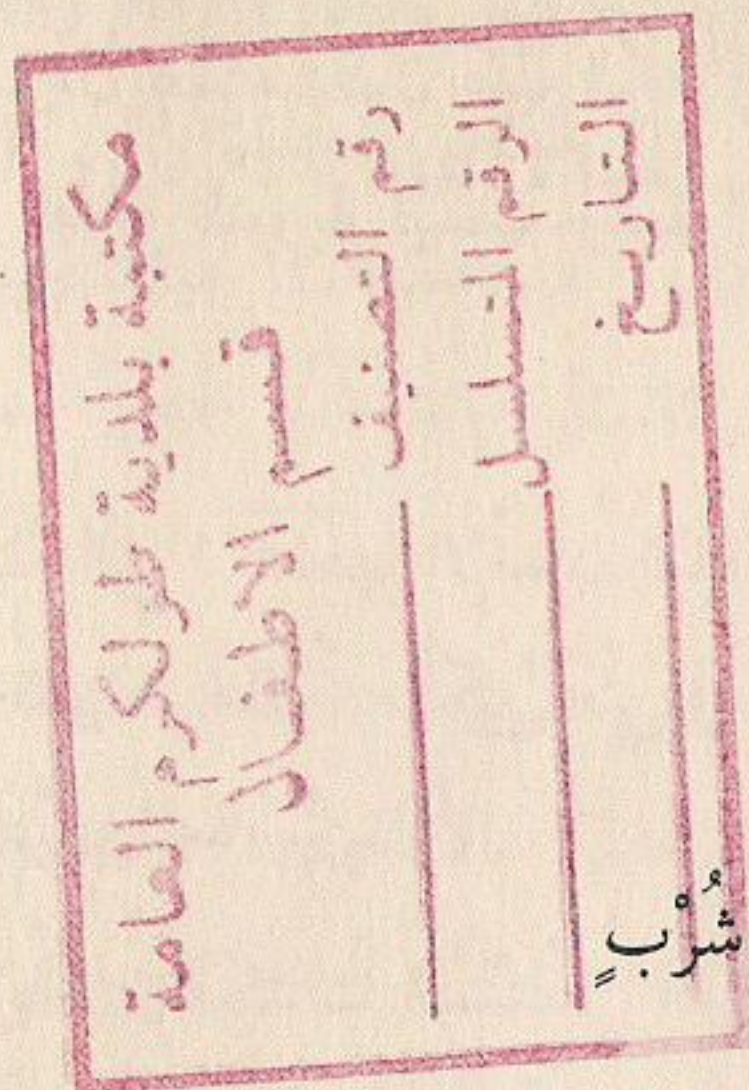 مكتبة بلدية طولكرم العامة
قسم الاطفال
رقم التصنيف
الرقم المتسلسل
التاريخ
شُرْبٍ